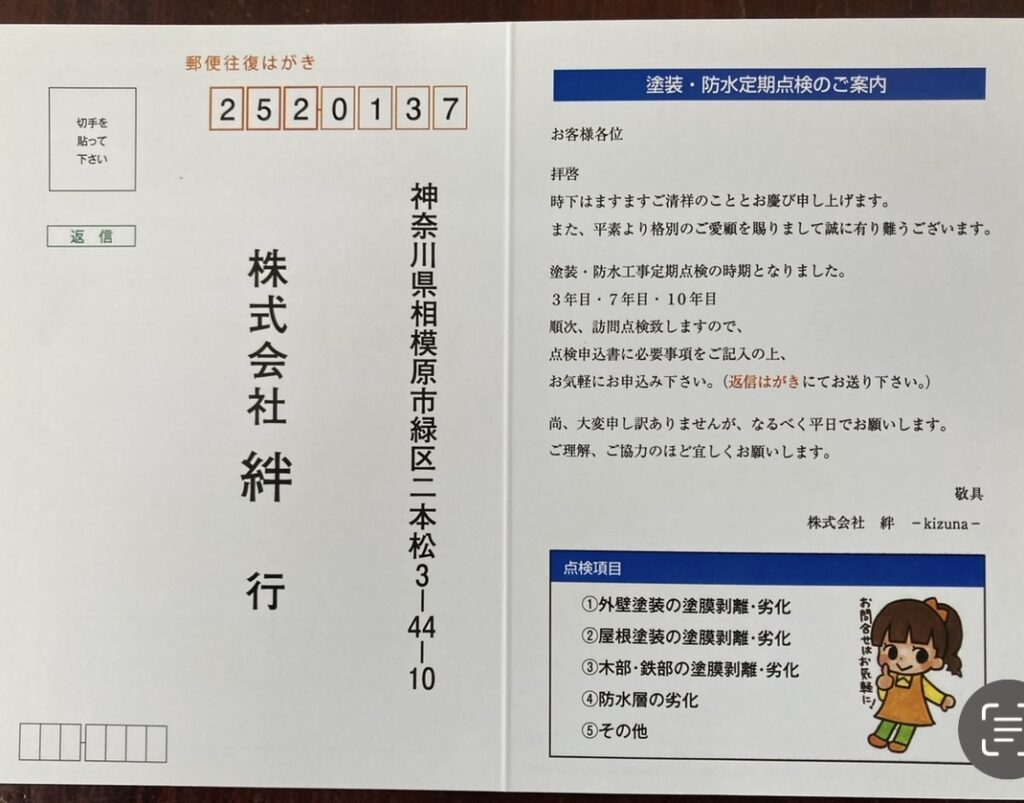 郵便往復はがき
切手を
貼って
下さい
2520137
返信
神奈川県相模原市緑区二本松3-44-10
株式会社 絆 行
塗装・防水定期点検のご案内
お客様各位
拝啓
時下はますますご清祥のこととお慶び申し上げます。
また、平素より格別のご愛顧を賜りまして誠に有り難うございます。
塗装・防水工事定期点検の時期となりました。
3年目・7年目・10年目
順次、訪問点検致しますので、
点検申込書に必要事項をご記入の上、
お気軽にお申込み下さい。(返信はがきにてお送り下さい。)
尚、大変申し訳ありませんが、なるべく平日でお願いします。
ご理解、ご協力のほど宜しくお願いします。
敬具
株式会社 絆 -kizuna-
点検項目
①外壁塗装の塗膜剥離・劣化
②屋根塗装の塗膜剥離・劣化
③木部・鉄部の塗膜剥離・劣化
④防水層の劣化
⑤その他
お問合せはお気軽に!